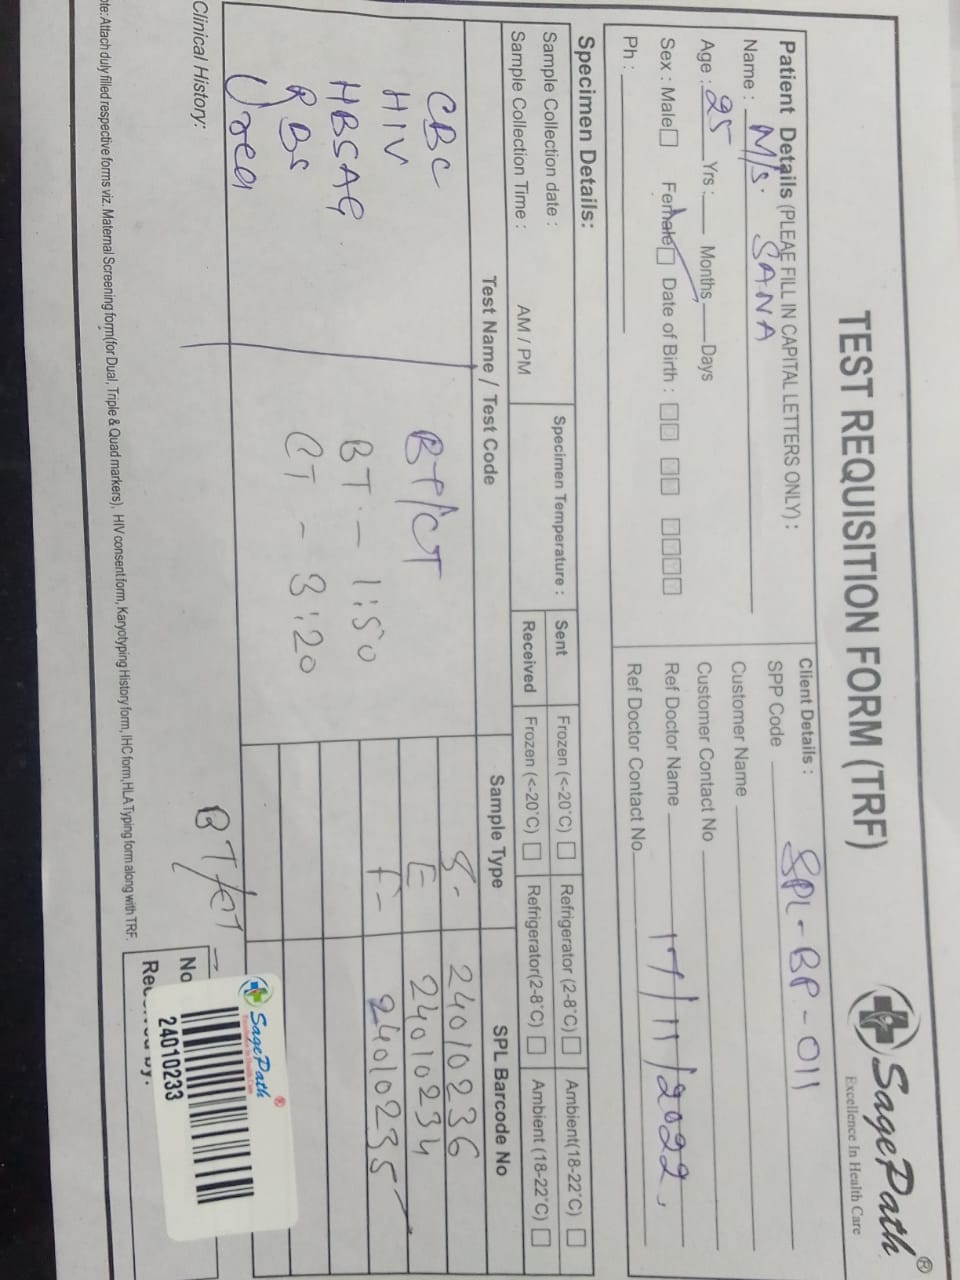 TEST REQUISITION FORM (TRF)
SagePath®
Excellence In Health Care
Patient Details (PLEAE FILL IN CAPITAL LETTERS ONLY) :
Name : M/s. SANA
Age : 25 Yrs : Months Days
Sex : Male Female Date of Birth :
Ph :
Client Details :
SPP Code SPL-BP-011
Customer Name
Customer Contact No
Ref Doctor Name 17/11/2022,
Ref Doctor Contact No
Specimen Details:
Sample Collection date :
Sample Collection Time : AM / PM
Specimen Temperature :
Sent Frozen (<-20°C) Refrigerator (2-8°C) Ambient(18-22°C)
Received Frozen (<-20°C) Refrigerator(2-8°C) Ambient (18-22°C)
Test Name / Test Code Sample Type SPL Barcode No
CBC
HIV
HBSAG
RBS
Urea
BT/CT
BT - 1:50
CT - 3:20
S- 24010236
E 24010234
F- 24010235
Clinical History:
BT/CT
SagePath®
24010233
No
te: Attach duly filled respective forms viz. Maternal Screening form(for Dual, Triple & Quad markers), HIV consent form, Karyotyping History form, IHC form, HLA Typing form along with TRF.